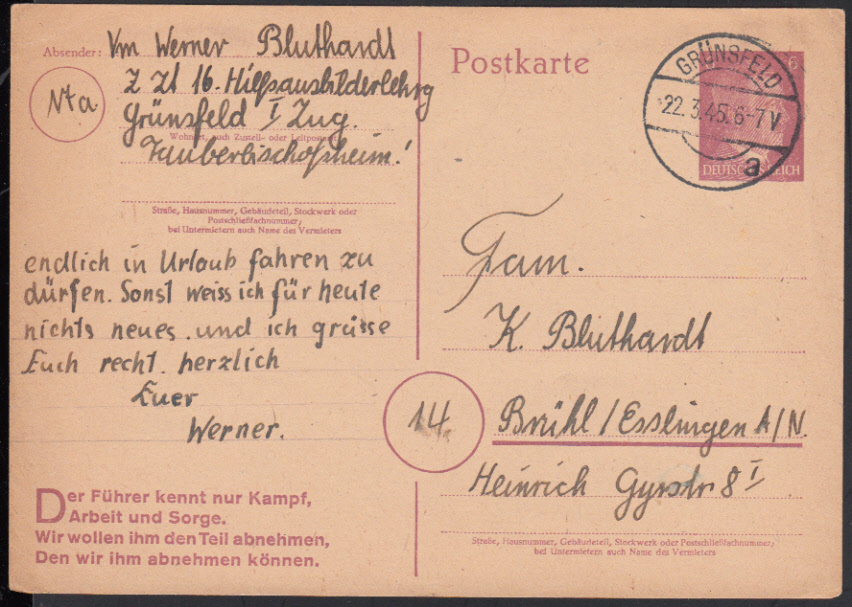 Absender: Vm Werner Bluthardt
z Zt 16. Hilfsausbilderlehrg
14a
Grünsfeld I Zug.
Wohnort, auch Zustell- oder Leitpostamt
Tauberbischofsheim!
Straße, Hausnummer, Gebäudeteil, Stockwerk oder
Postschließfachnummer,
bei Untermietern auch Name des Vermieters
endlich in Urlaub fahren zu
dürfen. Sonst weiss ich für heute
nichts neues. und ich grüsse
Euch recht herzlich
Euer
Werner.
Der Führer kennt nur Kampf,
Arbeit und Sorge.
Wir wollen ihm den Teil abnehmen,
Den wir ihm abnehmen können.
Postkarte
GRÜNSFELD
22.3.45.6-7V
a
6
DEUTSCHES REICH
Fam.
K. Bluthardt
14
Brühl/Esslingen A/N.
Heinrich Gyrstr 8 I
Straße, Hausnummer, Gebäudeteil, Stockwerk oder Postschließfachnummer,
bei Untermietern auch Name des Vermieters